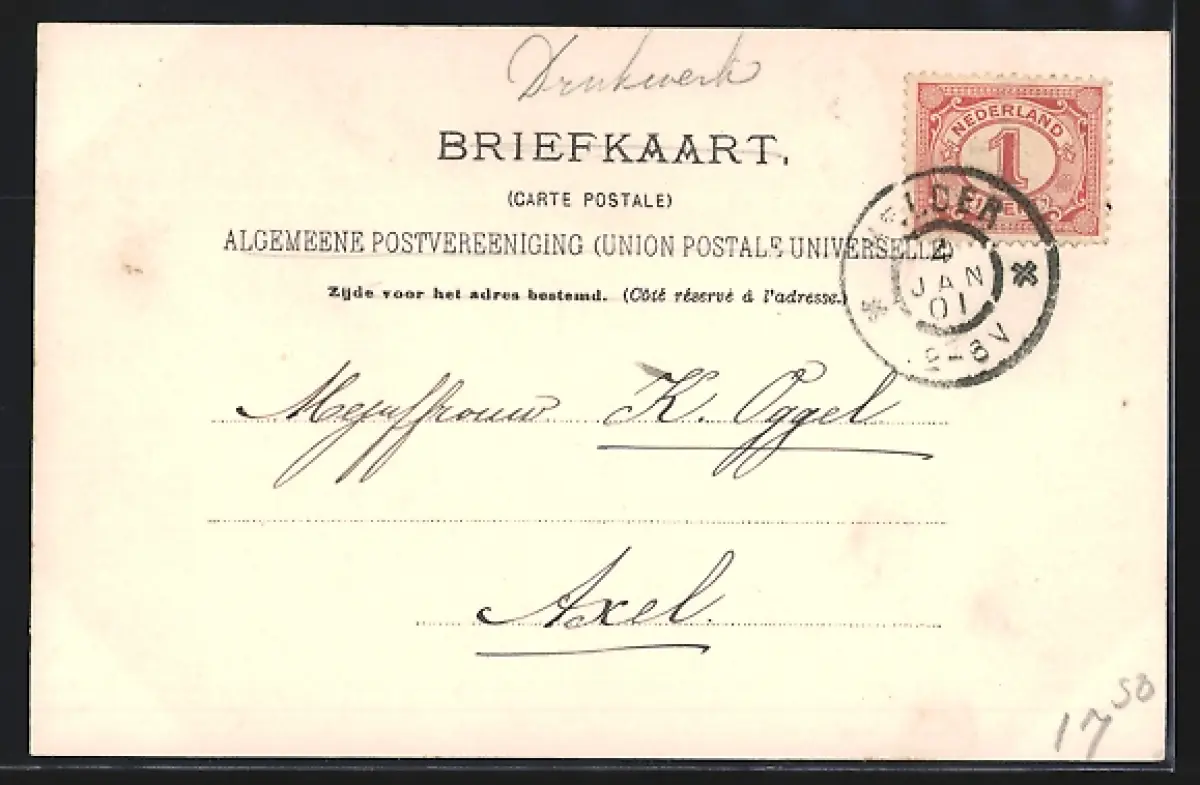 Drukwerk
BRIEFKAART.
(CARTE POSTALE)
ALGEMEENE POSTVEREENIGING (UNION POSTALE UNIVERSELLE)
Zijde voor het adres bestemd. (Côté réservé à l'adresse.)
NEDERLAND
1
HELDER
4
JAN
01
Mejuffrouw K. Oggel
Axel.
17 50